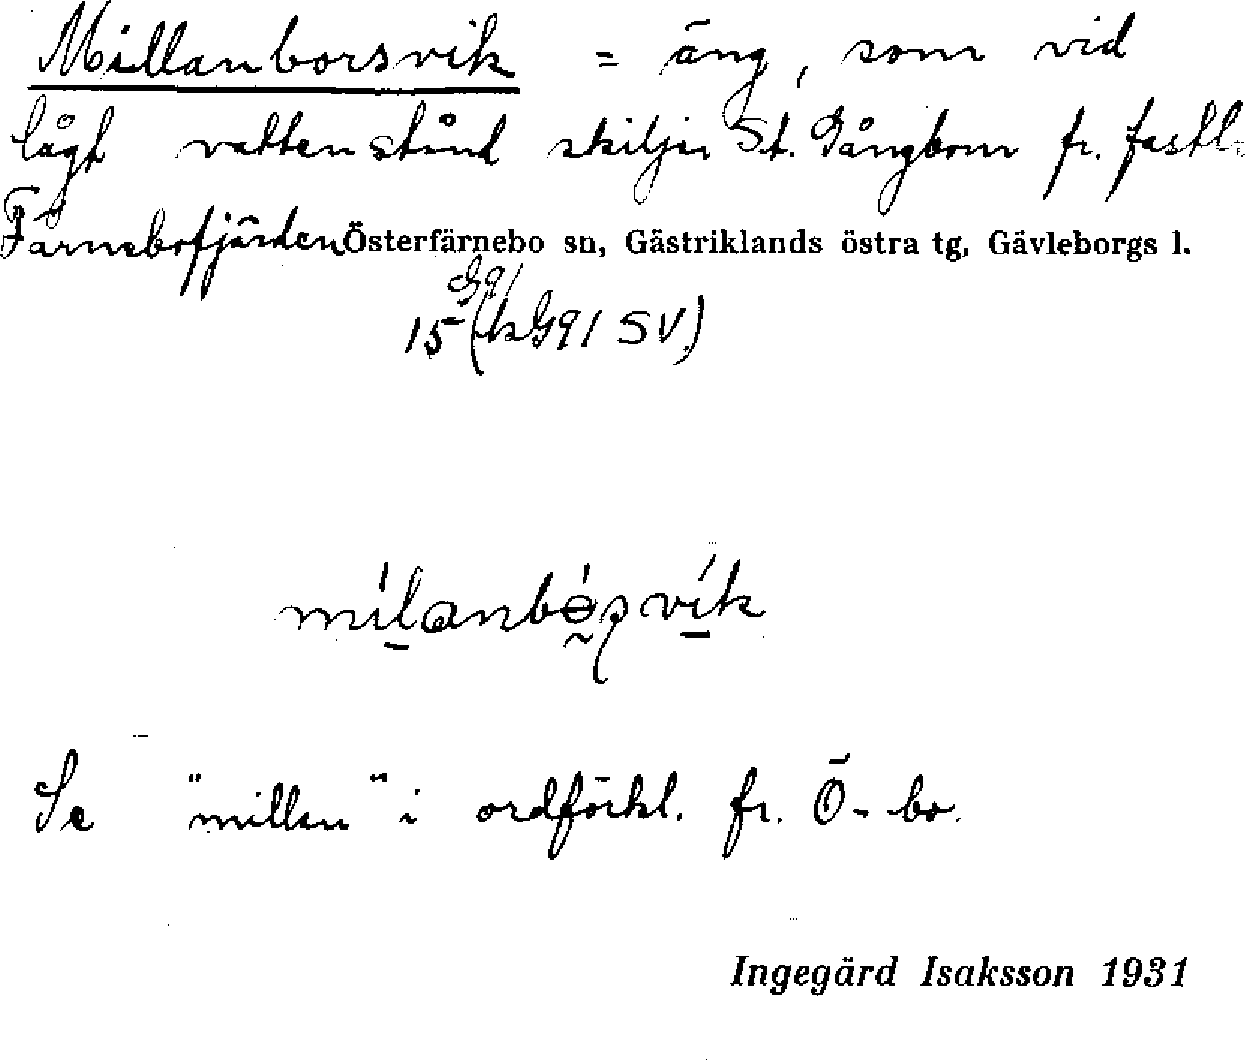 Millanborsvik = äng, som vid
lågt vattenstånd skiljer St. Gångborn fr. fastl.
Färnebofjärden Österfärnebo sn, Gästriklands östra tg, Gävleborgs l.
G91
15 (bG91 SV)
Se "millan" i ordförkl. fr. Ö-bo.
Ingegärd Isaksson 1931